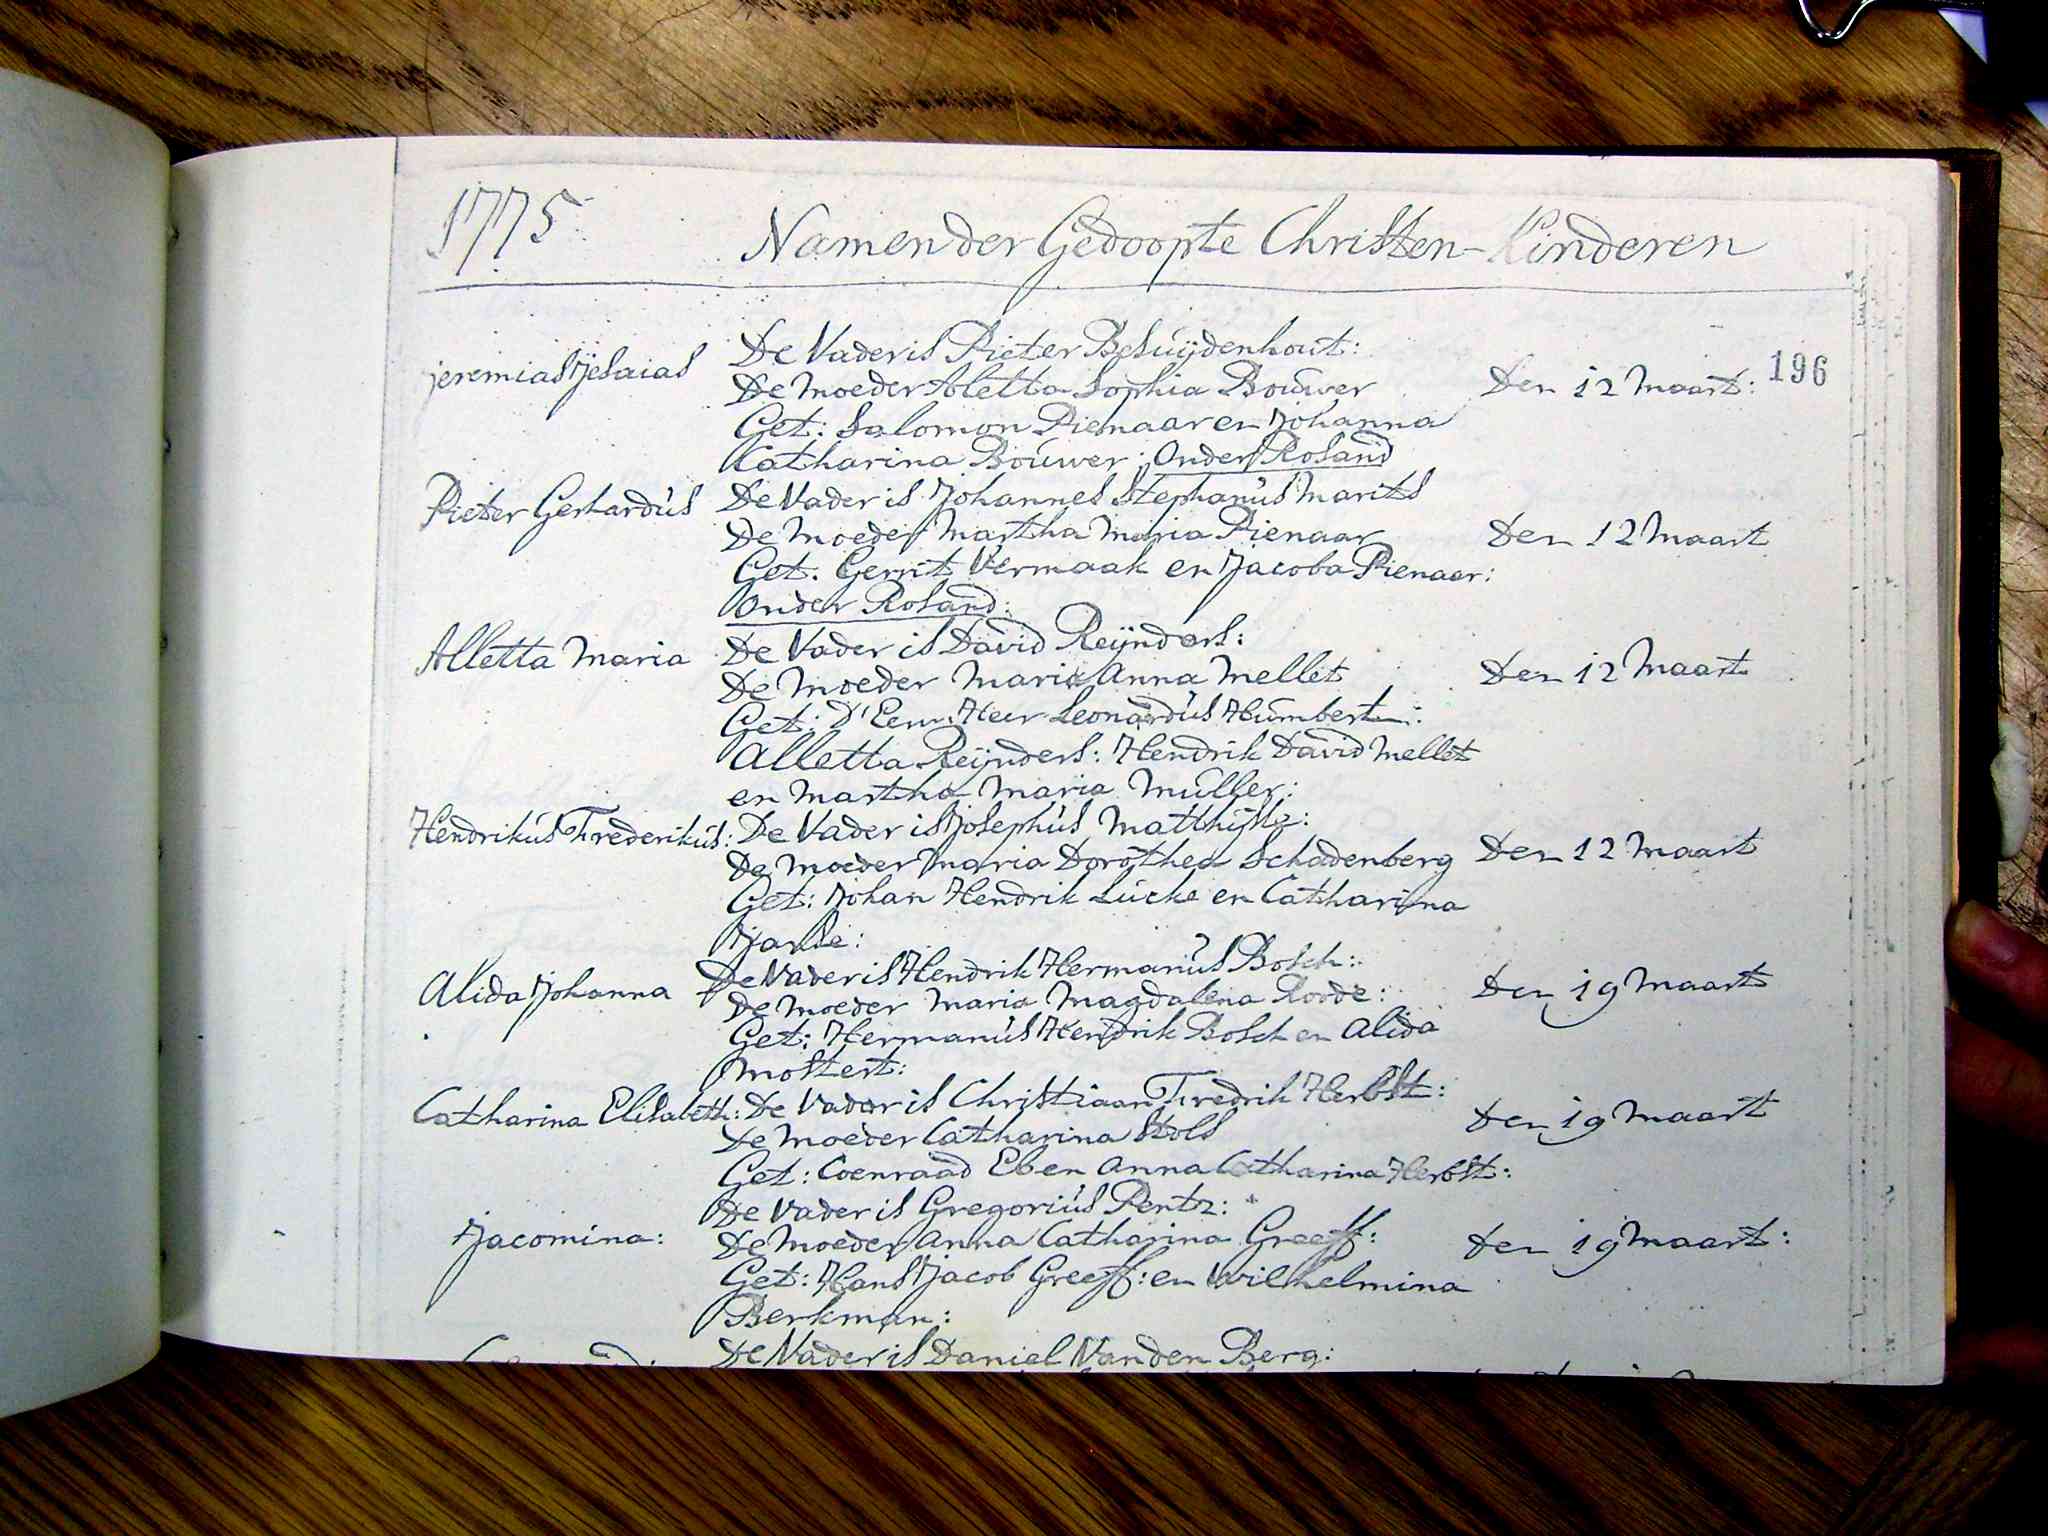 1775 Namen der Gedoopte Christen-Kinderen
196
jeremias Jesaias De Vader is Pieter Besuÿdenhout: Den 12 Maart:
De Moeder Aletta Sophia Bouwer
Get: Salomon Pienaar en Johanna
Catharina Bouwer: Onder Rosand
Pieter Gerhardus De Vader is Johannes Stephanus Marits Den 12 Maart
De Moeder Martha Maria Pienaar
Get. Gerrit Vermaak en Jacoba Pienaar:
Onder Rosand:
Alletta Maria De Vader is David Reÿnders: Den 12 Maart
De Moeder Maria Anna Mellet
Get: D'Eerw. Heer Leonardus Humbert:
Alletta Reÿnders: Hendrik David Mellet
en Martha Maria Muller:
Hendrikus Frederikus: De Vader is Josephus Matthÿse: Den 12 Maart
De Moeder Maria Dorothea Schadenberg
Get: Johan Hendrik Lucke en Catharina
Janse:
Alida Johanna De Vader is Hendrik Hermanus Bosch: Den 19 Maart
De Moeder Maria Magdalena Roode:
Get: Hermanus Hendrik Bosch en Alida
Mostert:
Catharina Elisabeth: De Vader is Christiaan Fredrik Herbst: Den 19 Maart
De Moeder Catharina Stols
Get: Coenraad Eb en Anna Catharina Herbst:
Jacomina: De Vader is Gregorius Pentz: Den 19 Maart:
De Moeder Anna Catharina Greeff:
Get: Hans Jacob Greeff: en Wilhelmina
Berkman:
De Vader is Daniel Van den Berg: